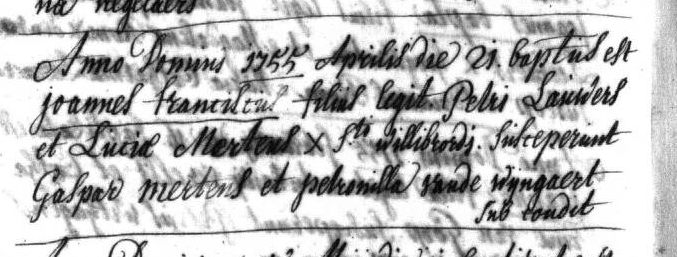 na negelaers
Anno Domini 1755 Aprilis die 21. baptus est
joannes franciscus filius legit. Petri Lauwers
et Luciæ Mertens x Sti willibrordj. Susceperunt
Gaspar mertens et petronilla vande wijngaert
sub condit